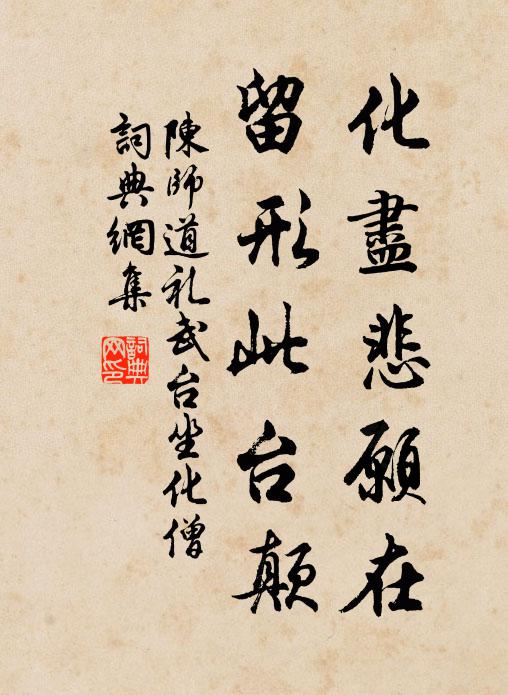 化盡悲願在
留形此台顛
陳師道礼武台坐化僧
詞典網集
詞典網印